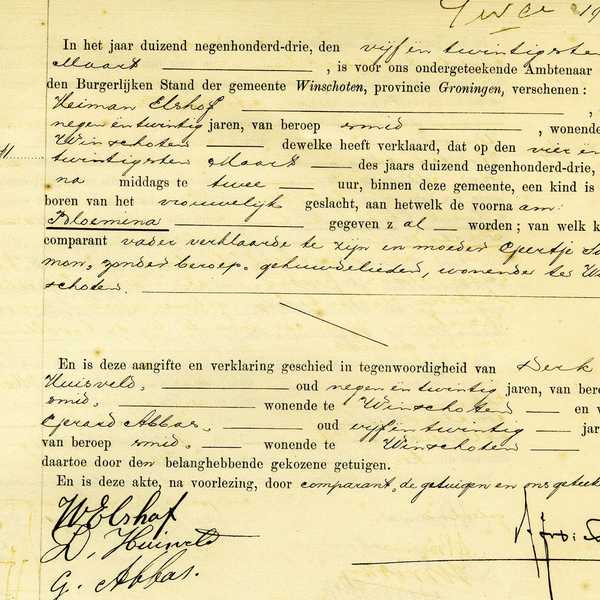 Twee 19
In het jaar duizend negenhonderd-drie, den vijf en twintigsten
Maart, is voor ons ondergeteekende Ambtenaar
den Burgerlijken Stand der gemeente Winschoten, provincie Groningen, verschenen:
Heiman Elshof,
negen en twintig jaren, van beroep smid, wonende
Winschoten dewelke heeft verklaard, dat op den vier en
twintigsten Maart des jaars duizend negenhonderd-drie,
na middags te twee uur, binnen deze gemeente, een kind is
boren van het vrouwelijk geslacht, aan hetwelk de voorna am:
Bloemina gegeven z al worden; van welk k
comparant vader verklaarde te zijn en moeder Epertje Sa
mon, zonder beroep, gehuwdelieden, wonende te Wi
schoten.
En is deze aangifte en verklaring geschied in tegenwoordigheid van Derk
Huisveld, oud negen en twintig jaren, van bero
smid, wonende te Winschoten en v
Gerard Abbas, oud vijf en twintig jar
van beroep smid, wonende te Winschoten
daartoe door den belanghebbende gekozene getuigen.
En is deze akte, na voorlezing, door comparant, de getuigen en ons geteek
WElshof
D. Huisveld
G. Abbas.